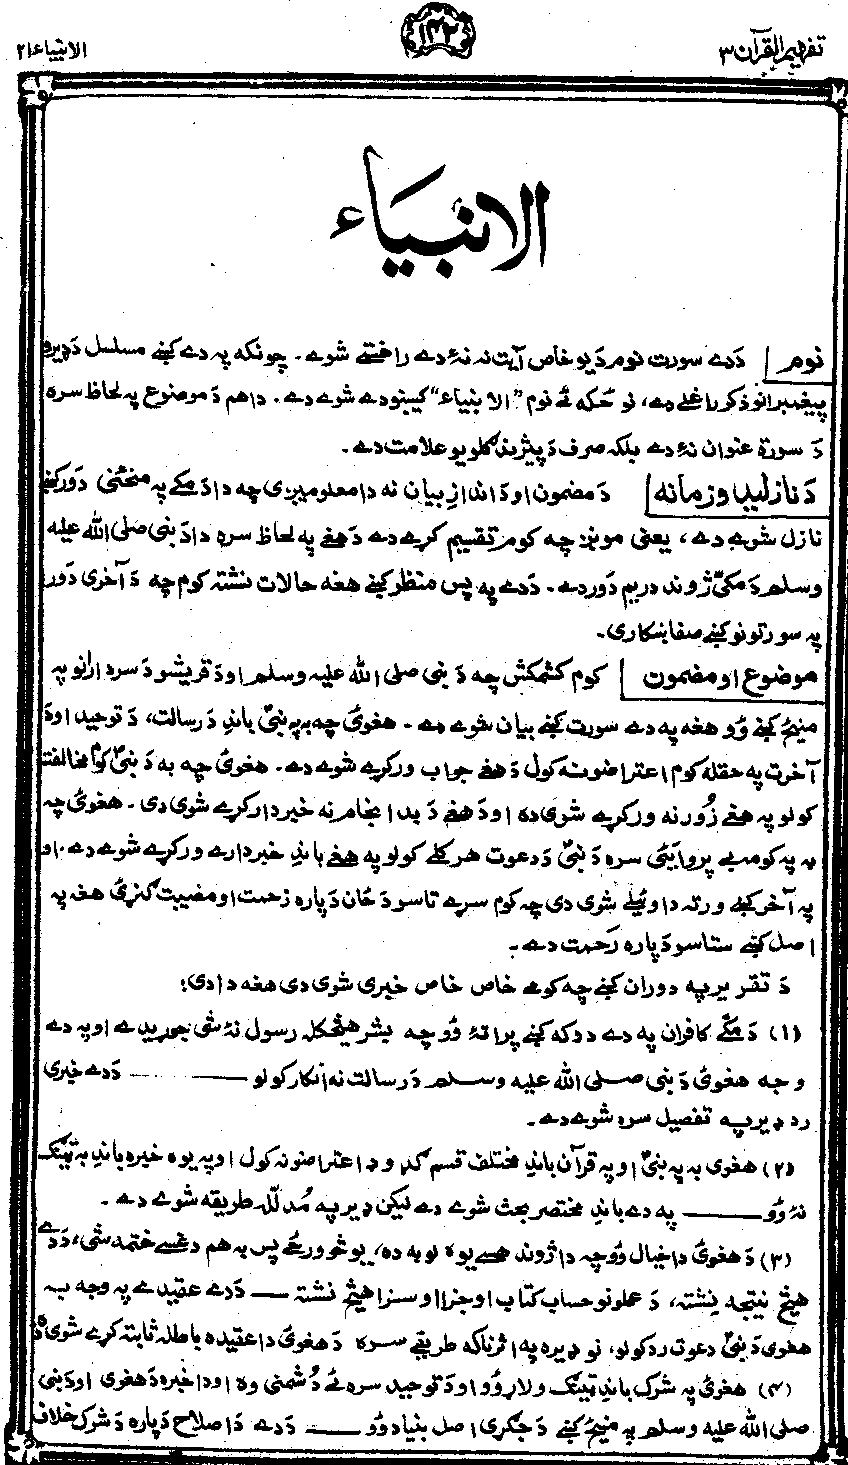 تفهیم القرآن ۳
۱۴۲
الانبیاء ۲۱
الانبیاء
نوم دَدے سورت نوم دَ یو خاص آیت نہ نۀ دے راخستے شوے۔ چونکہ پہ دے کښے مسلسل دَ ډیرو
پیغمبرانو ذکر راغلے دے، نو ځکہ ئے نوم "الانبیاء" کیښودے شوے دے۔ دا هم دَ موضوع پہ لحاظ سره
دَ سورة عنوان نۀ دے بلکہ صرف دَ پیژندګلو یو علامت دے۔
دَ نازلیدا و زمانہ دَ مضمون او دَ اندازِ بیان نہ دا معلومیږی چہ دا دَ مکے پہ منځنی دَور کښے
نازل شوے دے، یعنی مونږ چہ کوم تقسیم کړے دے دَ هغے پہ لحاظ سره دا دَ نبی صلی اللہ علیہ
وسلم دَ مکیّ ژوند دریم دَور دے۔ دَدے پہ پس منظر کښے هغه حالات نشتہ کوم چہ دَ آخری دَور
پہ سورتونو کښے صفا ښکاری۔
موضوع او مضمون کوم کشمکش چہ دَ نبی صلی اللہ علیہ وسلم او دَ قریشو دَ سردارانو پہ
منیځ کښے وُو هغه پہ دے سورت کښے بیان شوے دے۔ هغویٔ چہ بہ پہ نبیؐ باندِ دَ رسالت، دَ توحید او دَ
آخرت پہ حقلہ کوم اعتراضونہ کول دَ هغے جواب ورکړے شوے دے۔ هغویٔ چہ بہ دَ نبیؐ کوم مخالفتـ
کولو پہ هغے زُورنہ ورکړے شوی ده او دَ هغے دَ بد انجام نہ خبردار کړے شوی دی۔ هغویٔ چہ
بہ پہ کومہ بے پروایئ سره دَ نبیؐ دَ دعوت هر کلے کولو پہ هغے باندِ خبردارے ورکړے شوے دے۔ او
پہ آخر کښے ورتہ دا وئیلے شوی دی چہ کوم سړے تاسو دَ ځان دَپاره زحمت او مصیبت ګنړئ هغه پہ
اصل کښے ستاسو دَپاره رَحمت دے۔
دَ تقریر پہ دوران کښے چہ کومے خاص خاص خبری شوی دی هغه دا دی:
(۱) دَ مکّے کافران پہ دے دوکہ کښے پراتۀ وُو چہ بشر هیڅکلہ رسول نۀ شی جوړیدے او پہ دے
وجہ هغویٔ دَ نبی صلی اللہ علیہ وسلم دَ رسالت نہ انکار کولو —— دَدے خبری
رد ډیر پہ تفصیل سره شوے دے۔
(۲) هغوی بہ پہ نبیؐ او پہ قرآن باندِ مختلف قسم ګډ وډ اعتراضونہ کول او پہ یوه خبره باندِ بہ ټینګ
نۀ وُو —— پہ دے باندِ مختصر بحث شوے دے لیکن ډیر پہ مُدلّلہ طریقہ شوے دے۔
(۳) دَ هغویٔ دا خیال وُو چہ دا ژوند هسے یوه لوبہ ده، یو څو ورځے پس بہ هم دغسے ختمہ شی، دَدے
هیڅ نتیجہ نِشتہ، دَ عملونو حساب کتاب او جزا او سزا هیڅ نشتہ — دَدے عقیدے پہ وجہ بہ
هغوی دَ نبیؐ دعوت رد کولو، نو ډیره پہ اثرناکہ طریقے سره دَ هغویٔ دا عقیده باطلہ ثابتہ کړے شوی ده
(۴) هغویٔ پہ شرک باندِ ټینګ ولاړ وُو او دَ توحید سره ئے دُشمنی وه او دا خبره دَ هغوی او دَ نبی
صلی اللہ علیہ وسلم پہ منیځ کښے دَ جګړی اصل بنیاد وُو —— دَدے دَ اصلاح دَپاره دَ شرک خلاف